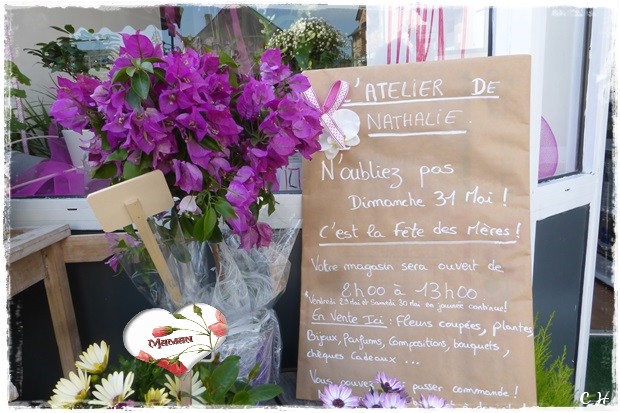 L'ATELIER DE
NATHALIE.
N'oubliez pas
Dimanche 31 Mai !
C'est la Fête des Mères !
Votre magasin sera ouvert de
8h00 à 13h00
Vendredi 29 mai et Samedi 30 mai en journée continue !
En Vente Ici : Fleurs coupées, plantes
Bijoux, Parfums, Compositions, bouquets,
chèques Cadeaux ...
Vous pouvez passer commande !
Maman
C H